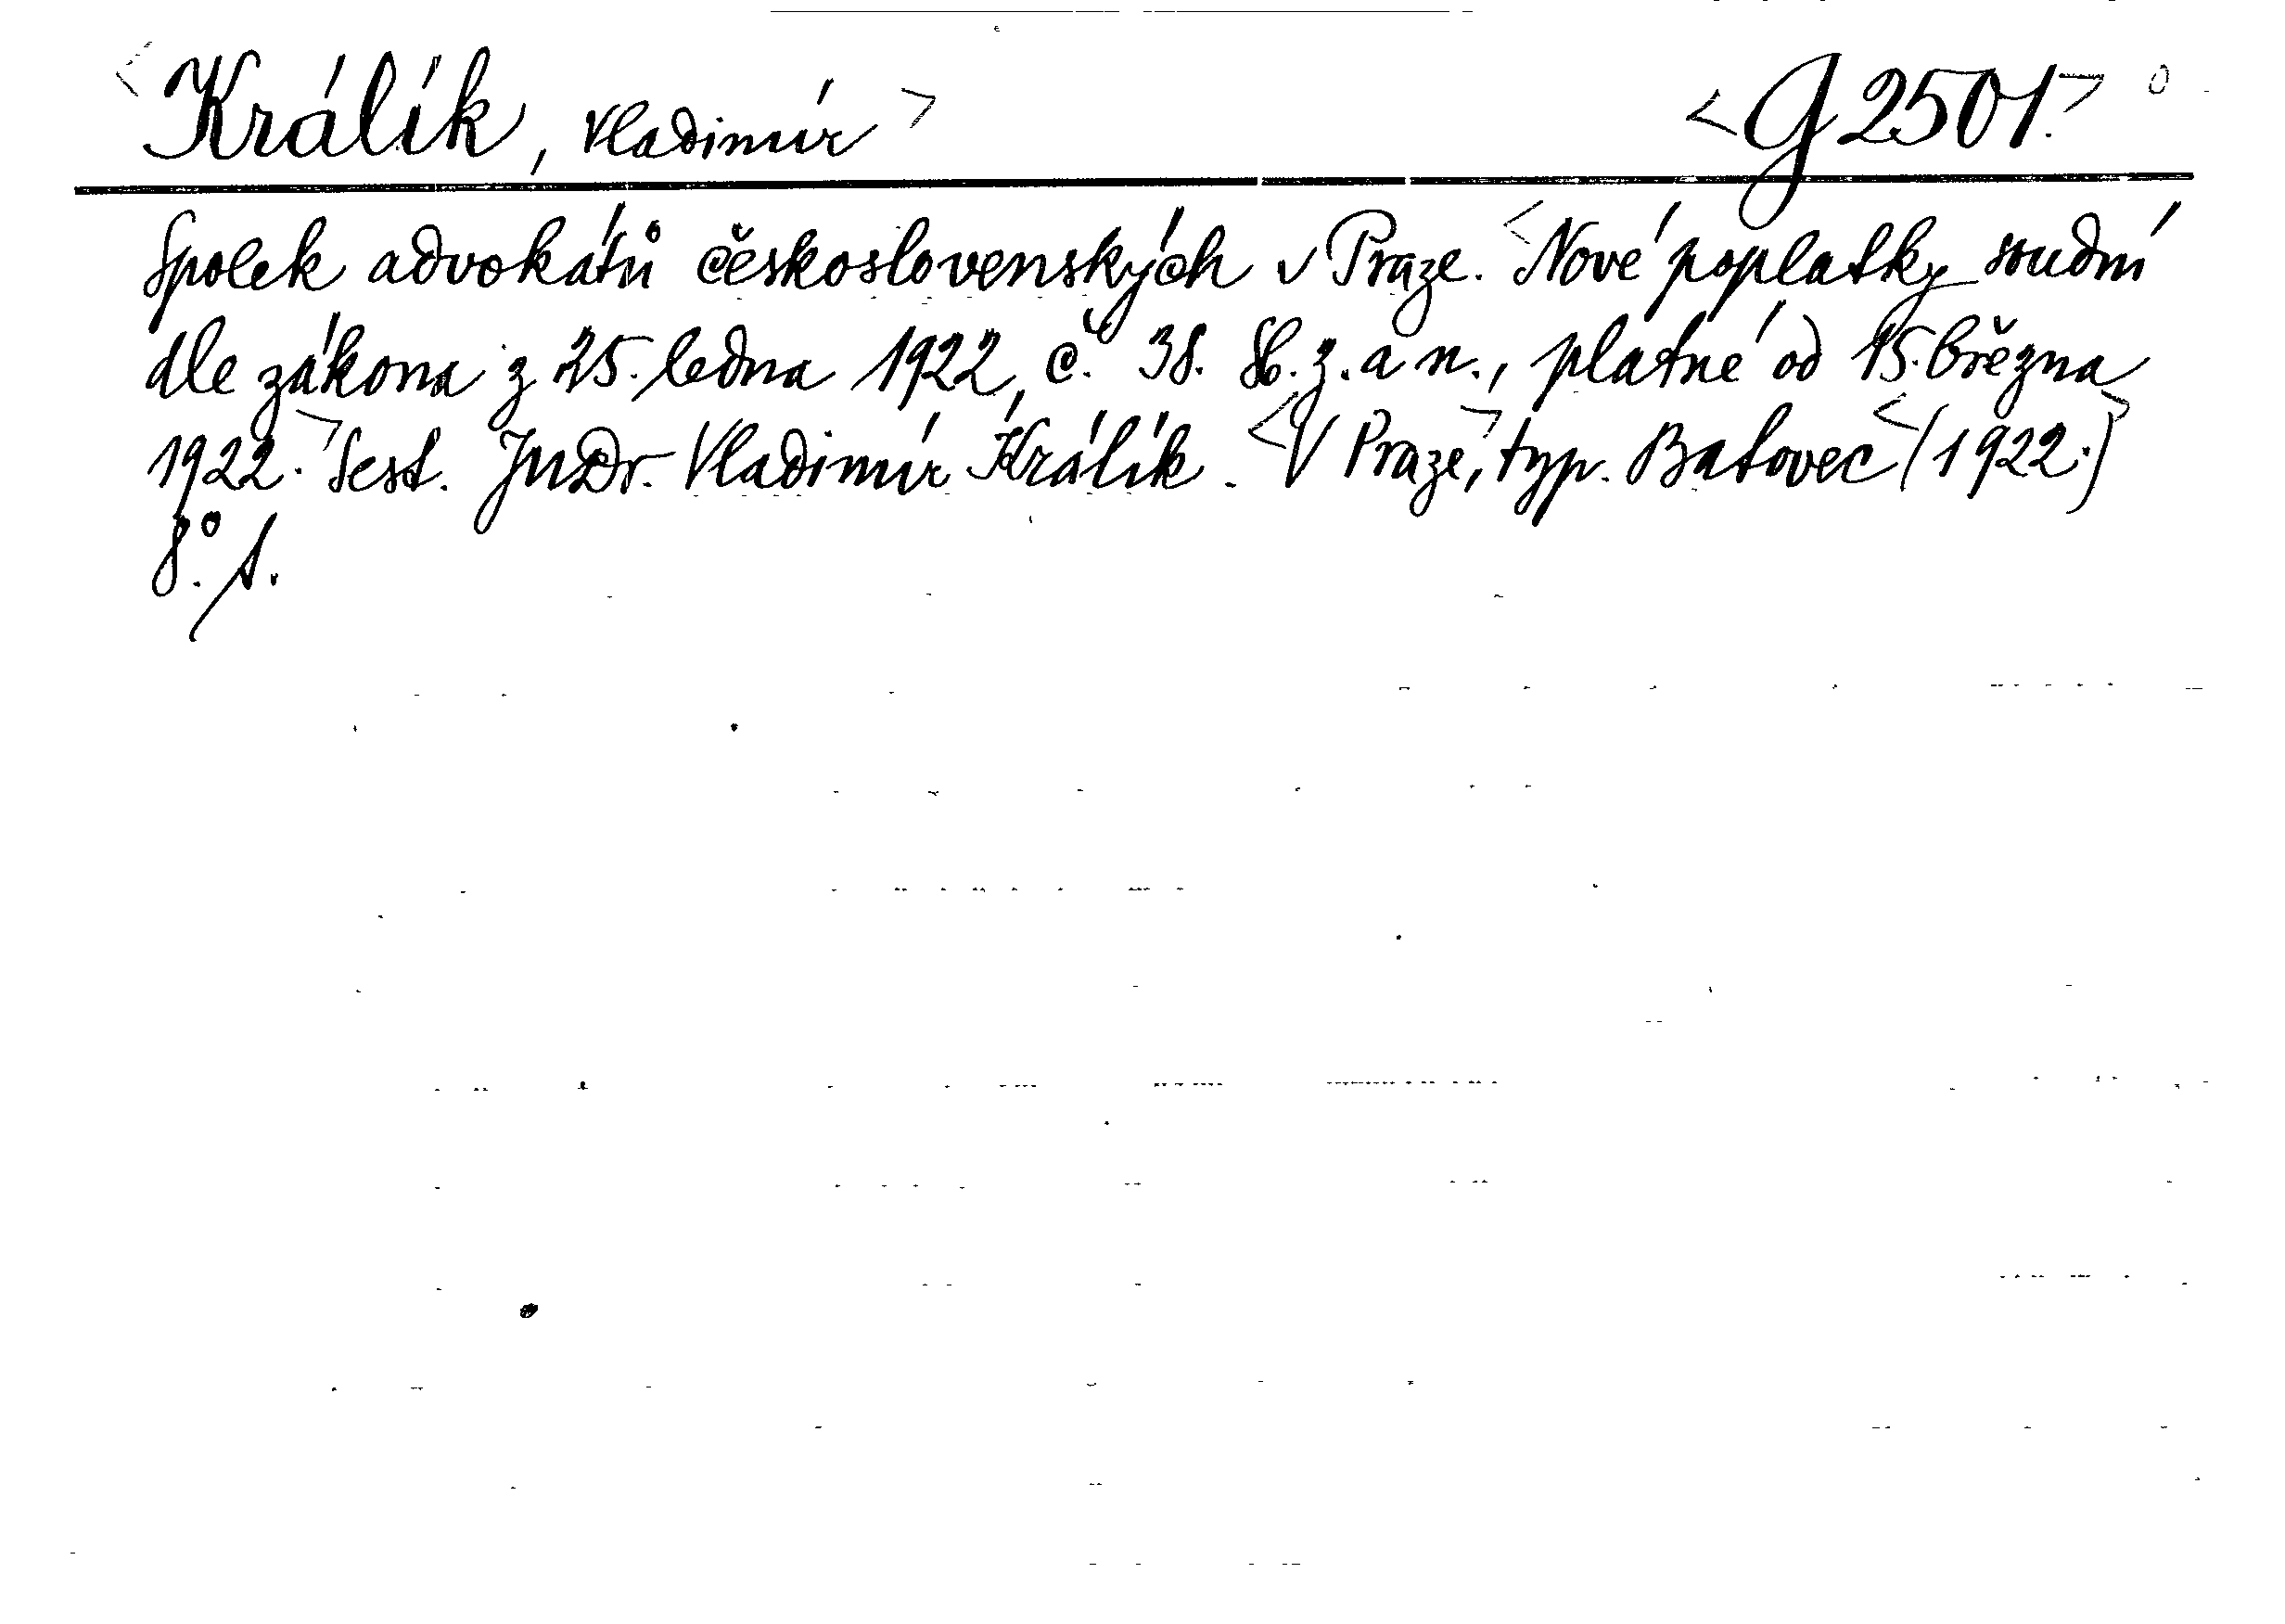 <Králík, Vladimír> <G 2501.> 0
Spolek advokátů československých v Praze. <Nové poplatky soudní
dle zákona z 25. ledna 1922, č. 38. Sb. z. a n., platné od 15. března
1922.> Sest. JUDr. Vladimír Králík. <V Praze,> typ. Batovec <(1922.)>
8°. s.